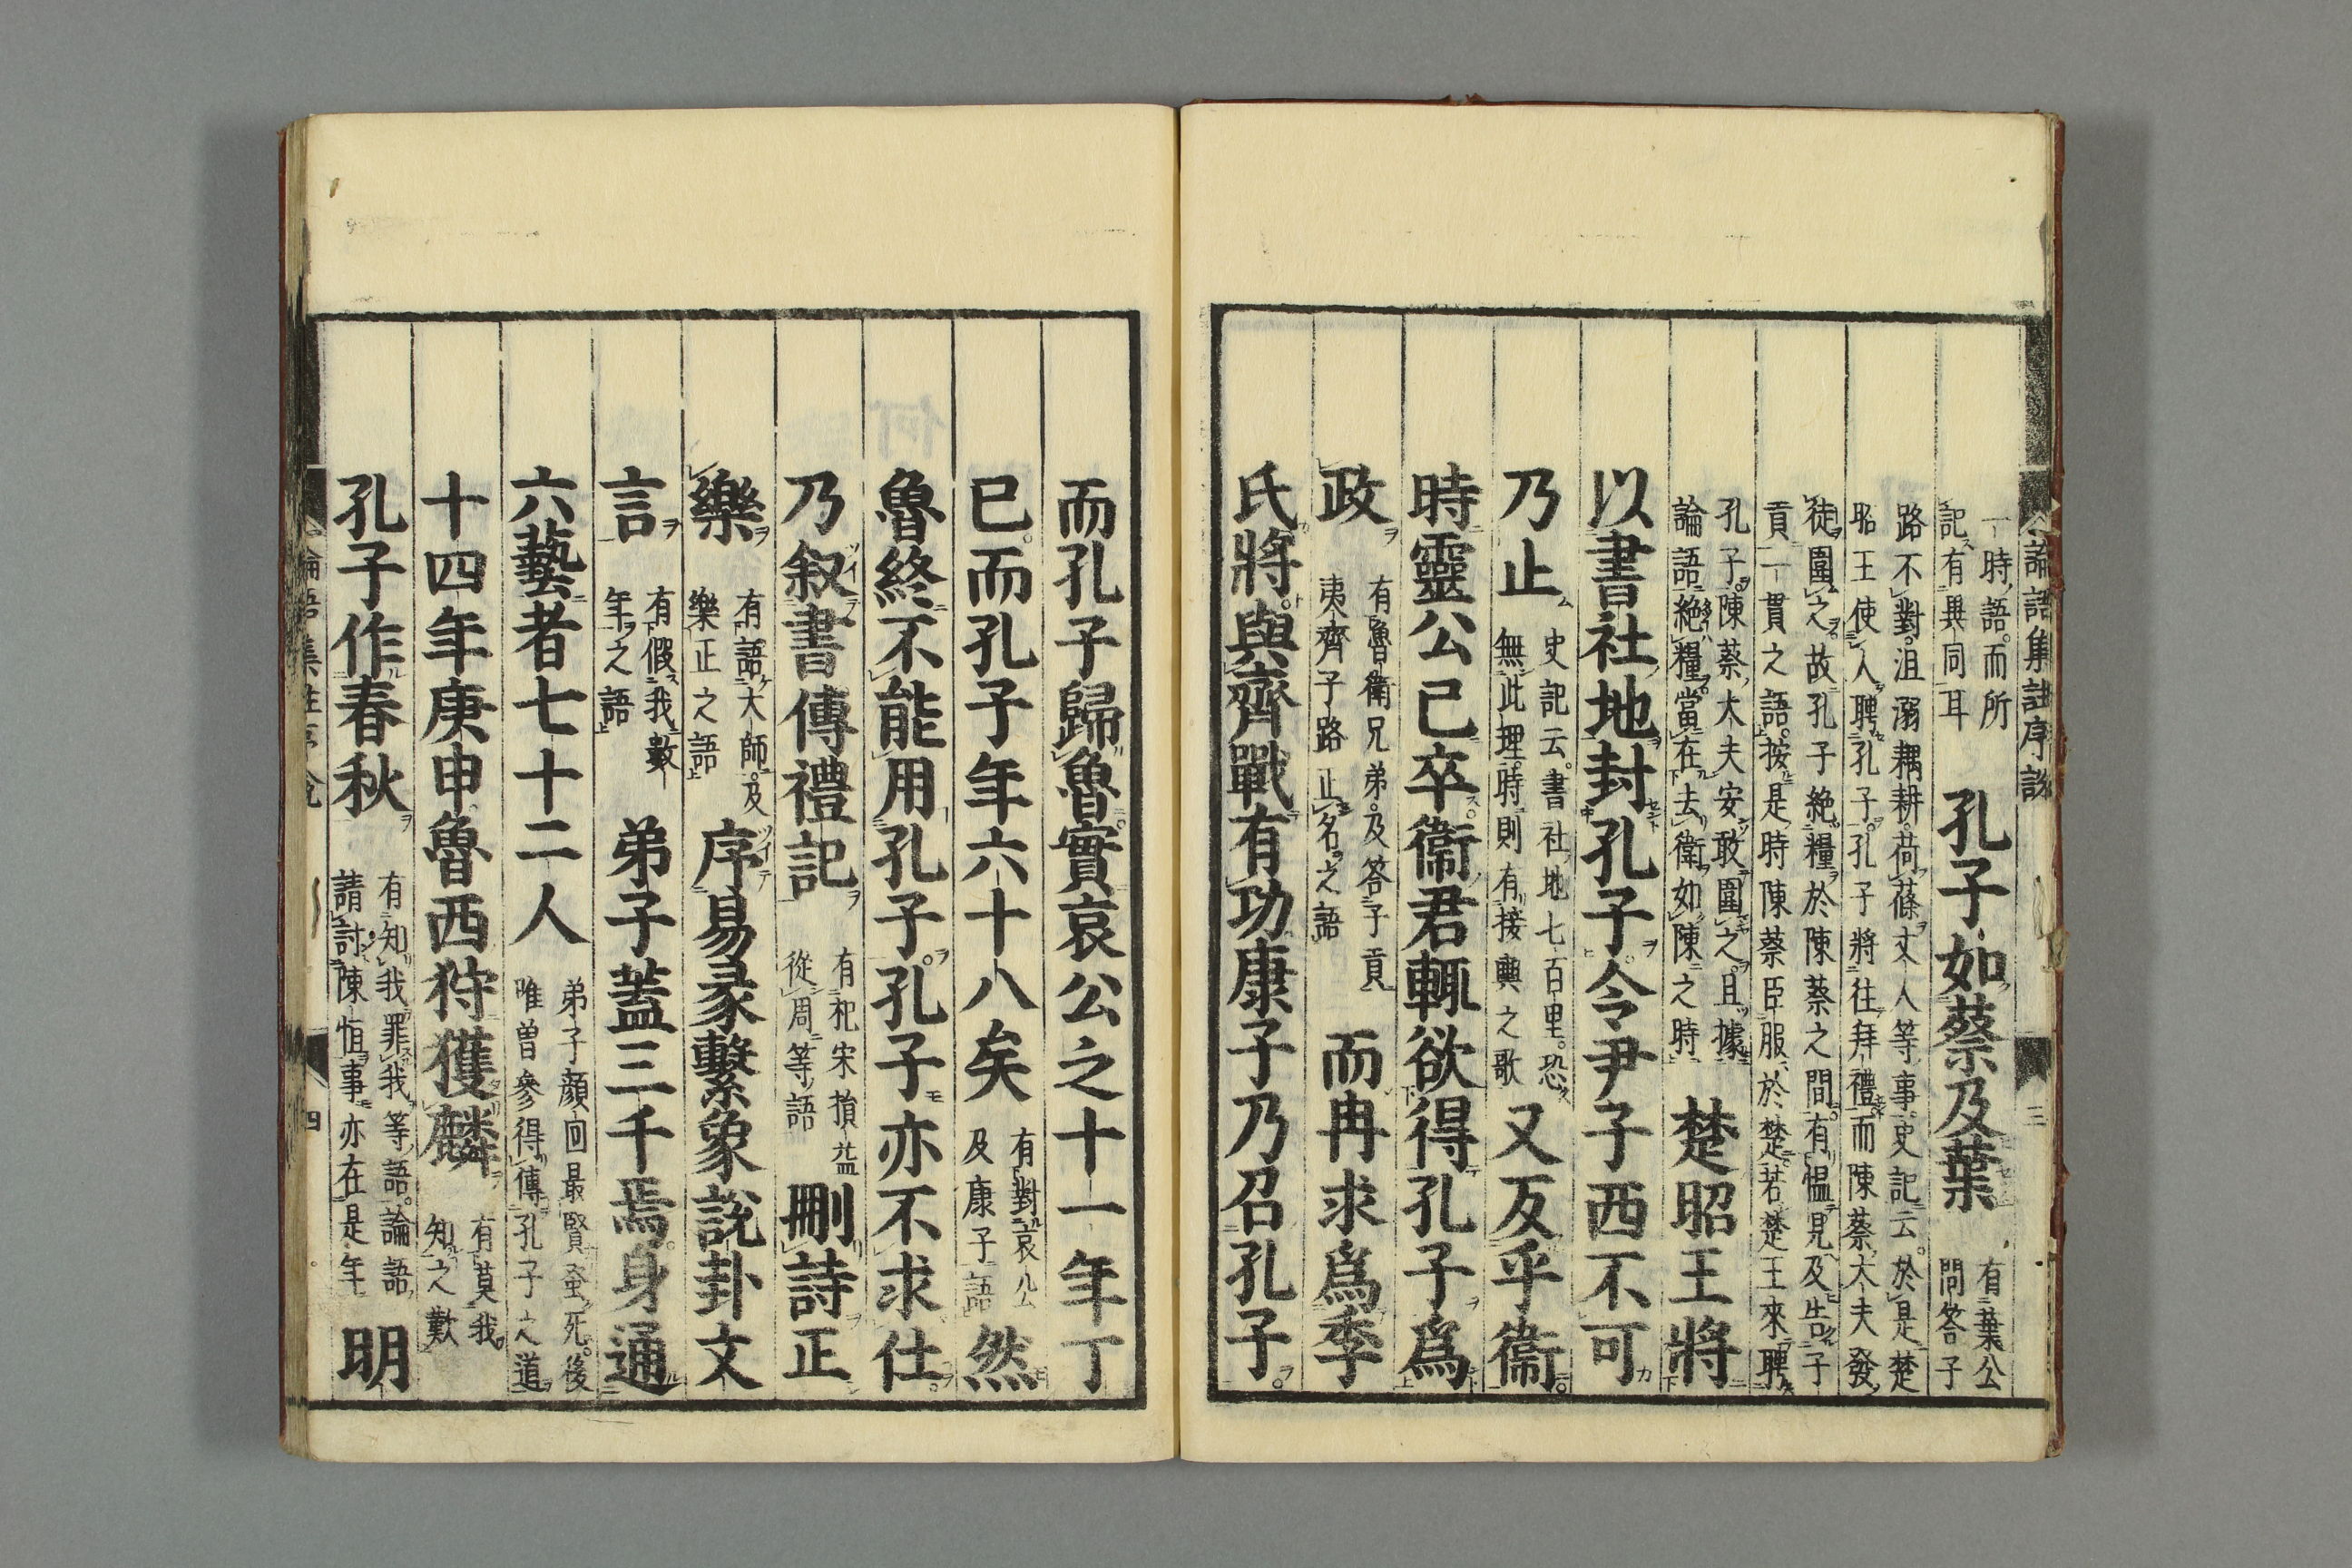 一時語而所
記有異同耳
孔子如蔡及葉
有葉公
問答子
路不對沮溺耦耕荷蓧丈人等事史記云於是楚
昭王使人聘孔子孔子將往拜禮而陳蔡大夫發
徒圍之故孔子絶糧於陳蔡之間有慍見及告子
貢一貫之語按是時陳蔡臣服於楚若楚王來聘
孔子陳蔡大夫安敢圍之且據
論語絶糧當在去衛如陳之時
楚昭王將
以書社地封孔子令尹子西不可
乃止
史記云書社地七百里恐
無此理時則有接輿之歌
又反乎衞
時靈公已卒衞君輒欲得孔子爲
政
有魯衛兄弟及答子貢
夷齊子路正名之語
而冉求爲季
氏將與齊戰有功康子乃召孔子
而孔子歸魯實哀公之十一年丁
巳而孔子年六十八矣
有對哀公
及康子語
然
魯終不能用孔子孔子亦不求仕
乃叙書傳禮記
有杞宋損益
從周等語
刪詩正
樂
有語大師及
樂正之語
序易彖繫象説卦文
言
有假我數
年之語
弟子蓋三千焉身通
六藝者七十二人
弟子顔回最賢蚤死後
唯曽參得傳孔子之道
十四年庚申魯西狩獲麟
有莫我
知之歎
孔子作春秋
有知我罪我等語論語
請討陳恒事亦在是年
明
論語集註序説
三
論語集註序説
四